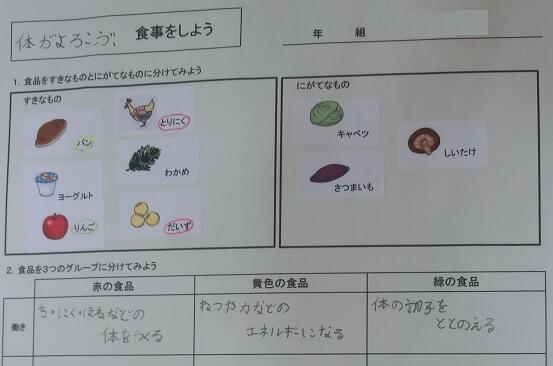 体がよろこぶ、 食事をしよう
年 組
1. 食品をすきなものとにがてなものに分けてみよう
すきなもの
にがてなもの
パン
とりにく
ヨーグルト
わかめ
りんご
だいず
キャベツ
しいたけ
さつまいも
2. 食品を3つのグループに分けてみよう
赤の食品 黄色の食品 緑の食品
働き
ち・にく・ほねなどの
体をつくる
ねつや力などの
エネルギーになる
体の調子を
ととのえる